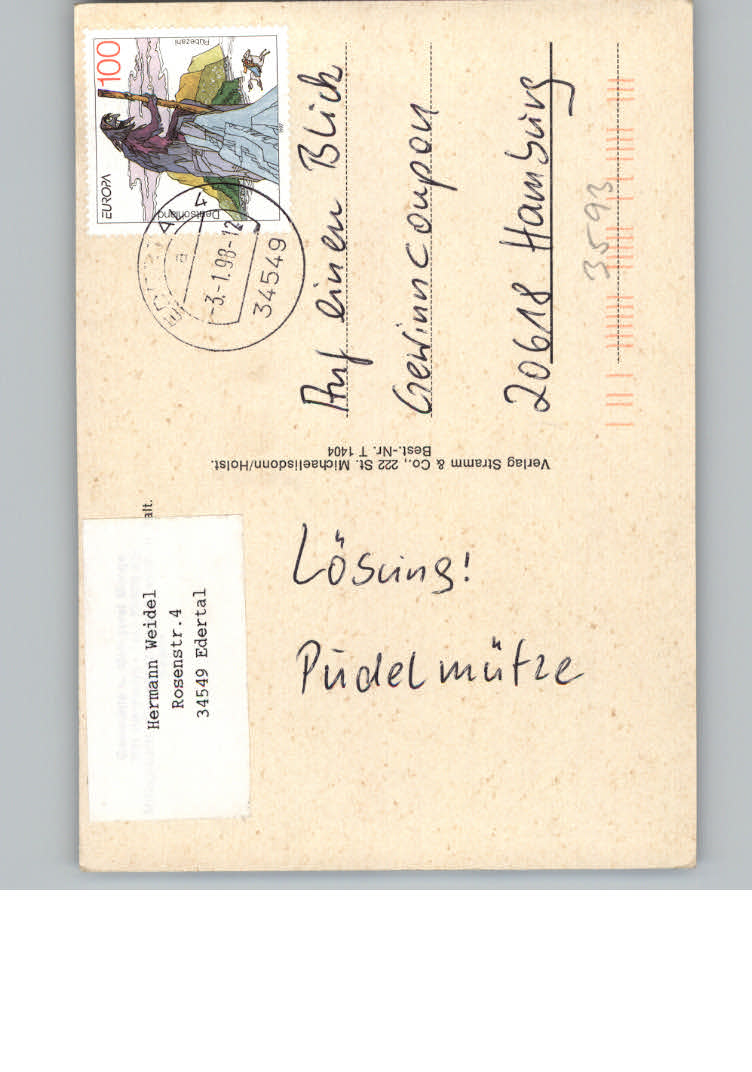 Hermann Weidel
Rosenstr.4
34549 Edertal
alt.
Lösung!
Pudelmütze
Verlag Stramm & Co., 222 St. Michaelisdonn/Holst.
Best.-Nr. T 1404
100
EUROPA
Rübezahl
Deutschland
4
a
-3.-1.98-12
34549
Auf einen Blick
Gewinncoupon
20618 Hamburg
3593